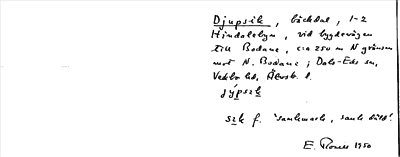 Djupsik, bäckdal, 1-2
Hindalebyn, vid bygdevägen
till Bodane, c:a 250 m N gränsen
mot N. Bodane; Dals-Eds sn,
Vedbo hd, Älvsb. l.
sık f. 'sankmark, sank däld'.
E. 1950